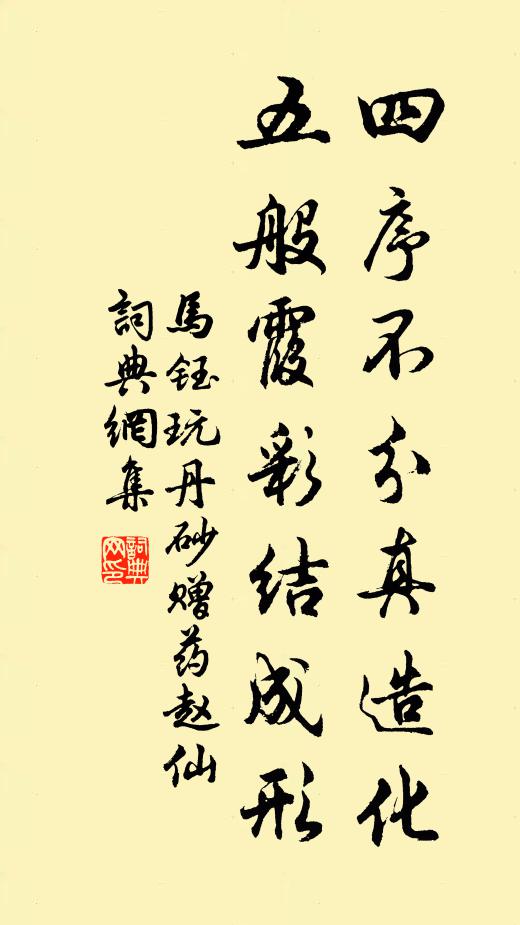 四序不分真造化
五般霞彩结成形
馬鈺玩丹砂赠药赵仙
詞典網集
詞典網印